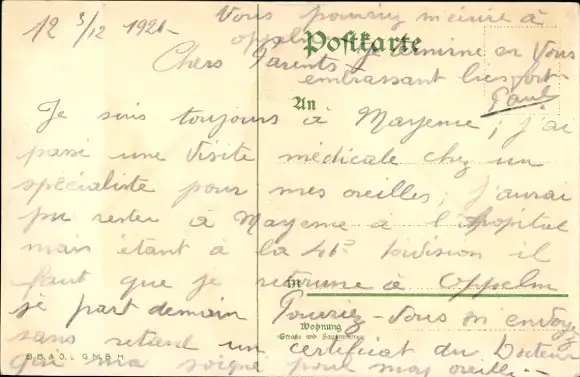 12 3/12 1921-
Vous pourriez m'écrire à
oppeln je termine en Vous
embrassant bien fort-
Paul
Postkarte
Chers Parents
An
Je suis toujours à Mayence ; j'ai
passé une Visite médicale chez un
spécialiste pour mes oreilles, j'aurai
pu rester à Mayence à l'hopital
mais étant à la 46e division il
faut que je retourne à Oppeln
in
je part demain Pouriez-Vous m'envoyez
Wohnung
Straße und Hausnummer
sans retard un certificat du Docteur
B.H.& O.L. G.M.B.H.
qui m'a soigné pour mes oreilles--